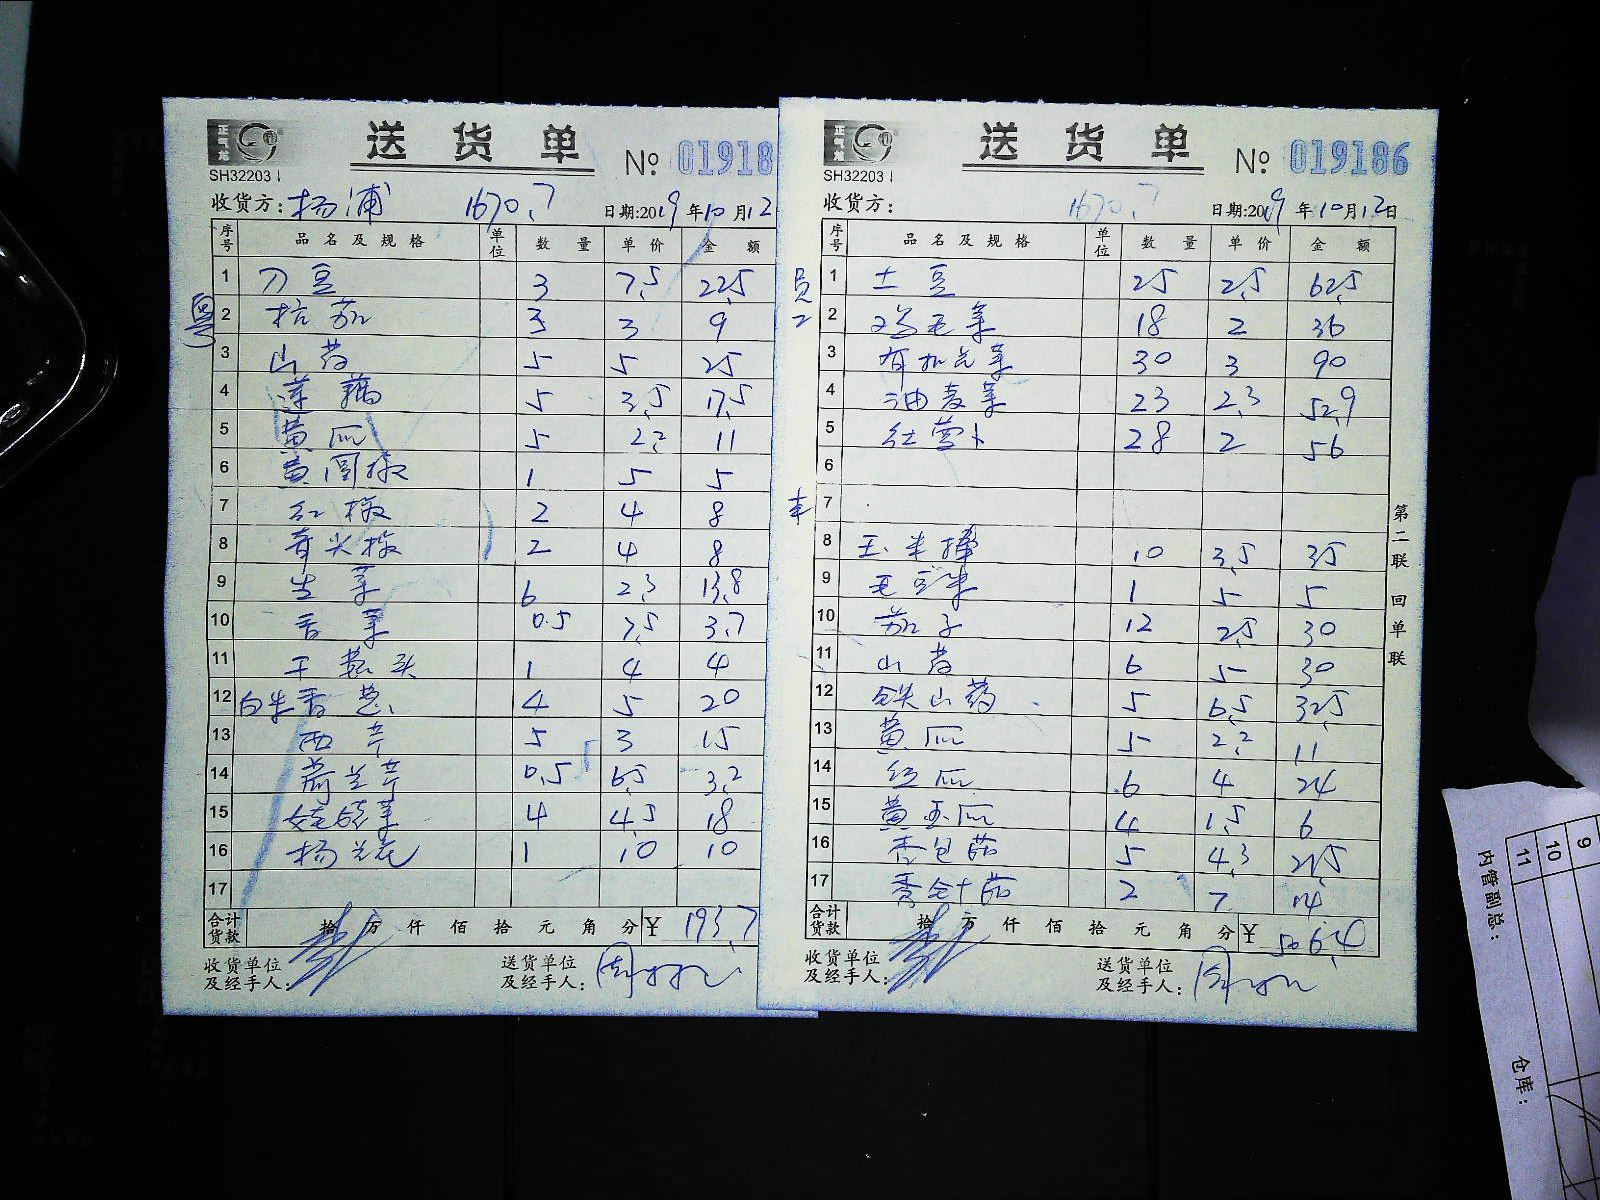 送货单
No. 01918
SH32203
收货方: 杨浦 1670.7 日期:2019年10月12
序号 品名及规格 单位 数量 单价 金额
1 刀豆 3 7.5 22.5
2 杭茄 3 3 9
3 山药 5 5 25
4 莲藕 5 3.5 17.5
5 黄瓜 5 2.2 11
6 黄圆椒 1 5 5
7 红椒 2 4 8
8 青尖椒 2 4 8
9 生菜 6 2.3 13.8
10 香菜 0.5 7.5 3.7
11 干葱头 1 4 4
12 白米香葱 4 5 20
13 西芹 5 3 15
14 荷兰芹 0.5 6.5 3.2
15 娃娃菜 4 4.5 18
16 杨兰花 1 10 10
17
合计货款 拾 万 仟 佰 拾 元 角 分 ¥ 193.7
收货单位及经手人:
送货单位及经手人:
送货单
No. 019186
SH32203
收货方: 1670.7 日期:2019年10月12日
序号 品名及规格 单位 数量 单价 金额
员工
1 土豆 25 2.5 62.5
2 鸡毛菜 18 2 36
3 有机花菜 30 3 90
4 油麦菜 23 2.3 52.9
5 红萝卜 28 2 56
6
7
8 玉米棒 10 3.5 35
9 毛豆米 1 5 5
10 茄子 12 2.5 30
11 山药 6 5 30
12 铁山药 5 6.5 32.5
13 黄瓜 5 2.2 11
14 红瓜 6 4 24
15 黄玉瓜 4 1.5 6
16 杏包菇 5 4.3 21.5
17 2 7 14
合计货款 拾 万 仟 佰 拾 元 角 分 ¥ 506.40
收货单位及经手人:
送货单位及经手人:
第二联 回单联
9
10
11
内管副总:
仓库: